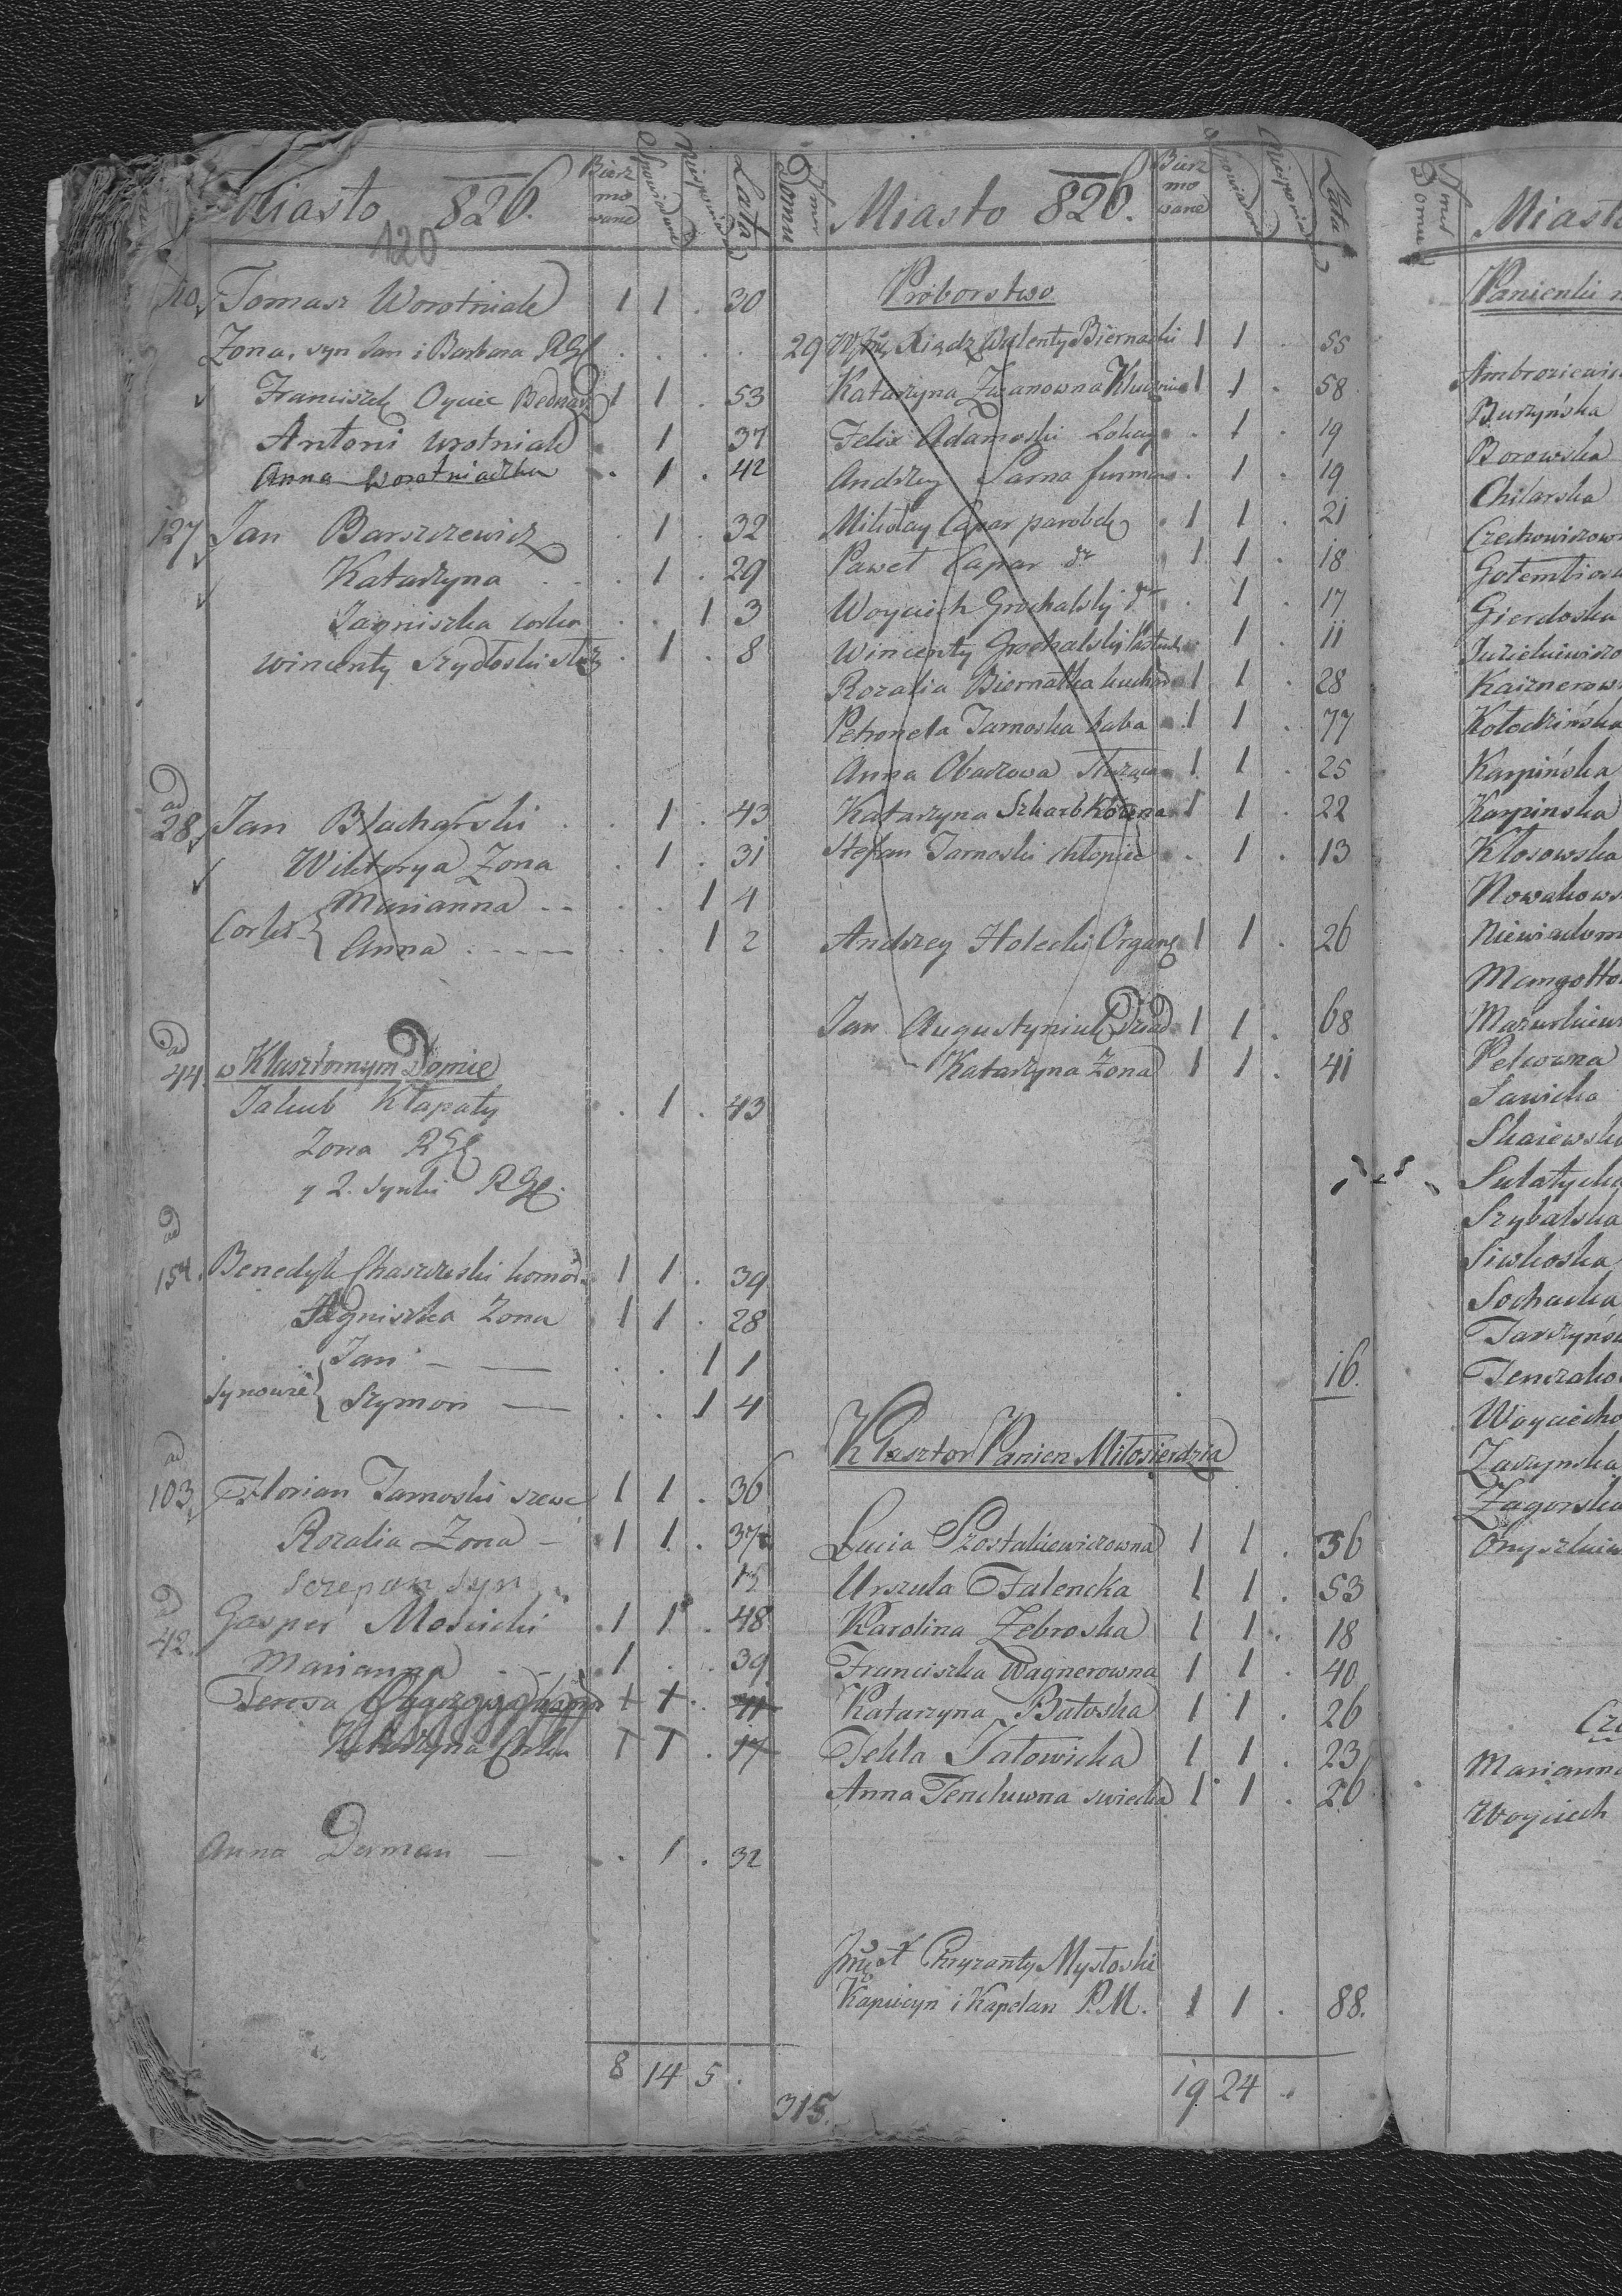 Miasto 826. Bierz mo wane Spowiadane Niespowia Lata
120
Tomasz Worotniak 1 1 . 30
Zona, syn Jan i Barbara RGł . . . .
Franciszek Oyciec Bednarz 1 1 . 53
Antoni Wrotniak . 1 37
Anna Worotniaczka . 1 . 42
127 Jan Barszczewicz . 1 . 32
Katarzyna . . . 1 . 29
Jagniszka corka . . 1 3
Wincenty Szydłoski . 1 . 8
ad 28 Jan Blacharski . . 1 . 43
Wiktorya Zona . 1 . 31
Corki Marianna -- . . 1 4
Anna ---- . . 1 2
ad 44 w Klasztornym Domie
Jakub Kłapaty . 1 . 43
Zona RGł
y 2. synki RGł.
ad 154. Benedykt Chaszczeski komor 1 1 . 39
Jagniszka Zona 1 1 . 28
Synowie Jan — . . 1 1
Szymon — . . 1 4
ad 103 Florian Jarnoski szewc 1 1 . 36
Rozalia Zona - 1 1 . 37
Szczepan syn 15
ad 42. Gasper Mosicki 1 1 . 48
Marianna 1 . . 39
Teresa 1 1 . 41
Katarzyna Corka 1 1 . 17
Anna Duman — . 1 . 32
8 14 5 .
Nmer Domu Miasto 826. Bierz mo wane Spowiadane Niespowia Lata
Proborstwo
29 Xiądz Walenty Biernacki 1 1 . 55
Katarzyna Zwanowna Klucznica 1 1 . 58
Felix Adamoski Lokay . 1 . 19
Andrzey Sarna furman . 1 . 19
Mikołay Capar parobek 1 1 . 21
Paweł Capar dto 1 1 . 18
Woyciech Grochalski dto . 1 . 17
Wincenty Grochalski Pastuch 1 . 11
Rozalia Biernatka kuchar 1 1 . 28
Petronela Jarnoska baba 1 1 . 77
Anna Obaszowa Służąca 1 1 . 25
Katarzyna Szkarbkowna 1 1 . 22
Stefan Jarnoski chłopiec . 1 . 13
Andrzey Holecki Organ 1 1 . 26
Jan Augustyniak Dziad 1 1 . 68
Katarzyna Zona 1 1 . 41
16.
Klasztor Panien Miłosierdzia
Lucia Szostakiewiczowna 1 1 . 56
Urszula Falencka 1 1 . 53
Karolina Zebroska 1 1 . 18
Franciszka Wagnerowna 1 1 . 40
Katarzyna Batoska 1 1 . 26
Tekla Jatowicka 1 1 . 23
Anna Tenchuwna swiecka 1 1 . 26
Chryzanty Mysłoski
Kapucyn i Kapelan P.M. 1 1 . 88.
19 24 .
315.
Nmer Domu Miast
Panienki
Ambroziewic
Buszyńska
Borowska
Chilarska
Czechowiczow
Gołembiosk
Gierdoska
Juzickiewiczo
Kaiznerow
Kołodzińska
Karpińska
Karpinska
Kłosowska
Nowakows
Niewiadom
Mangotto
Mazurkiew
Pelcowna
Sawicka
Skaiewsk
Sulatycka
Szybalska
Siwkoska
Sochacka
Tarczyńs
Tenczako
Woyciecho
Zaczynska
Zagorska
Onyszkiew
Marianna
Woyciech